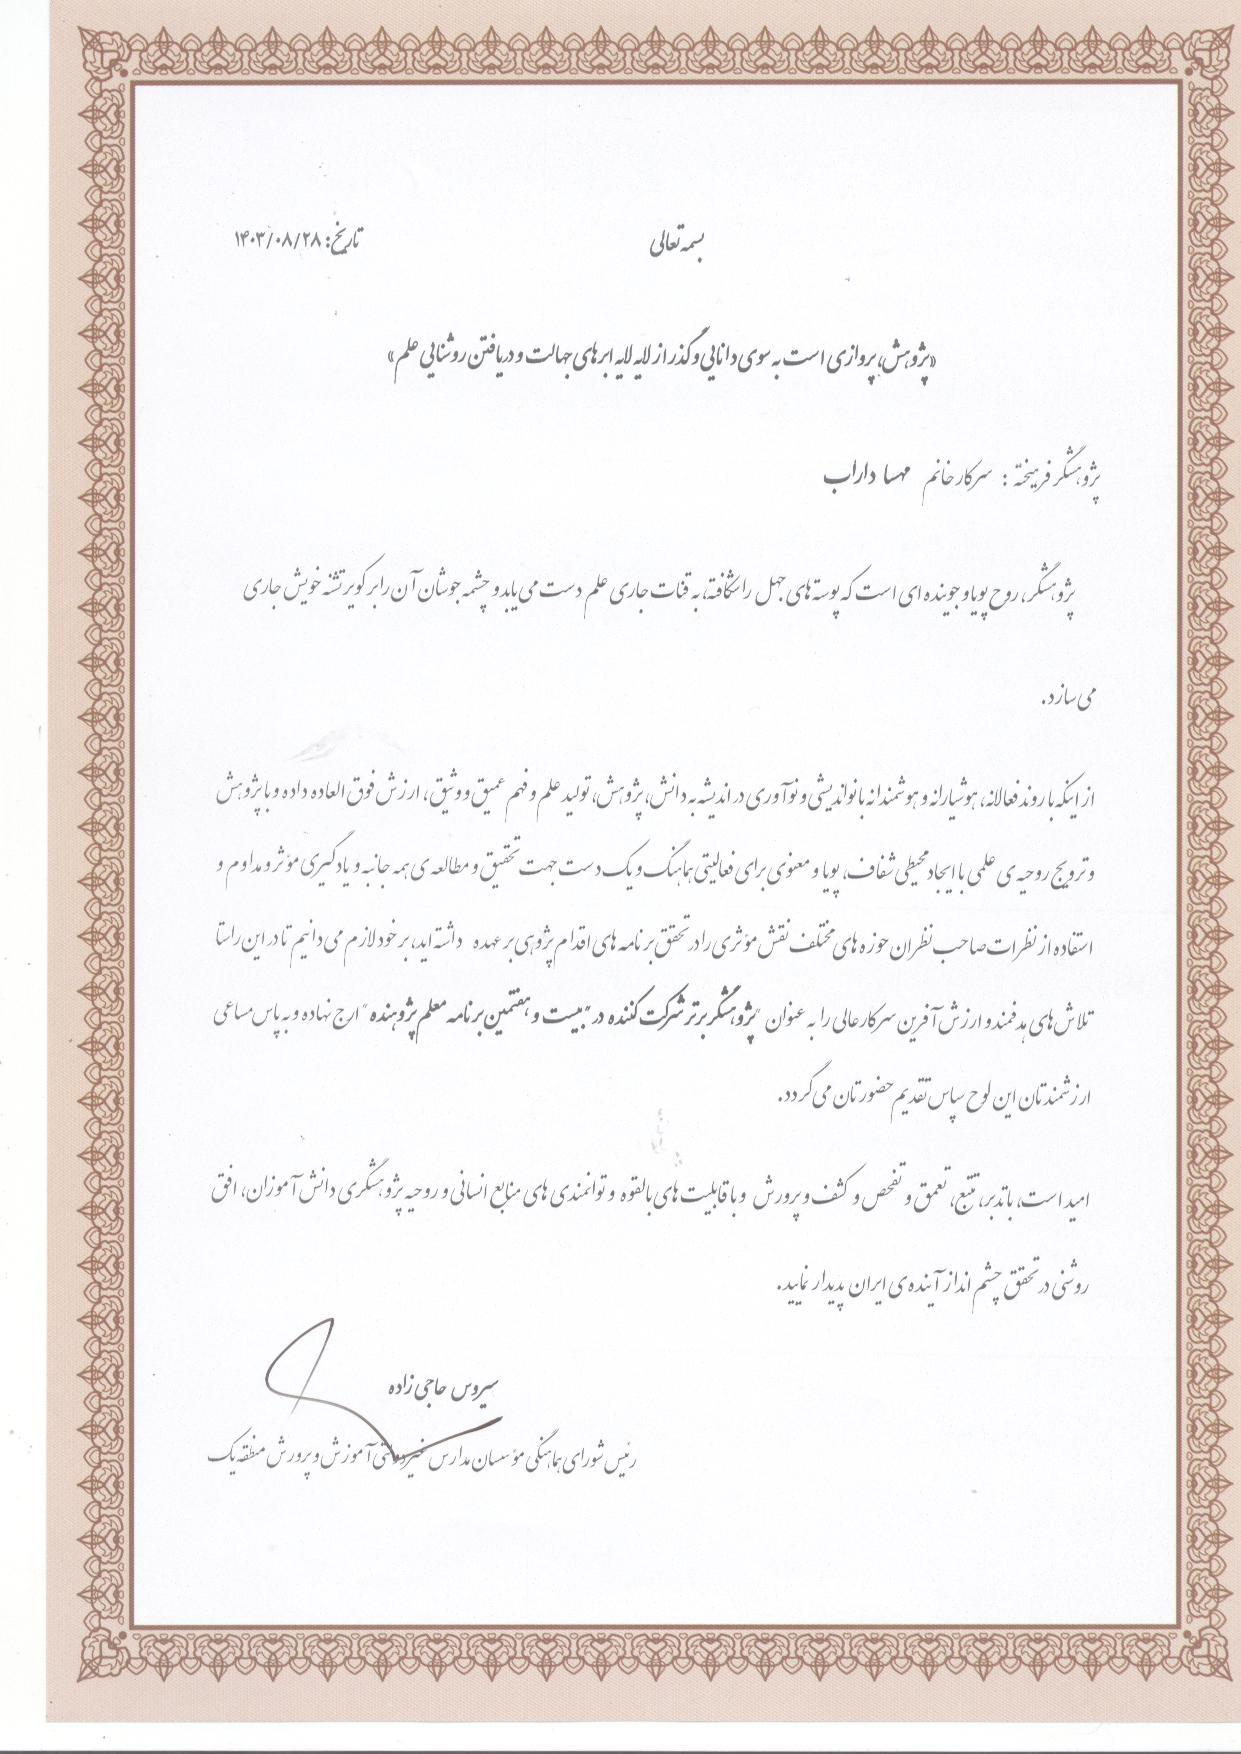 بسمه تعالی
تاریخ: ۱۴۰۳/۰۸/۲۸
«پژوهش، پروازی است به سوی دانایی و گذر از لایه لایه ابرهای جهالت و دریافتن روشنایی علم»
پژوهشگر فرهیخته : سرکار خانم مهسا داراب
پژوهشگر، روح پویا و جوینده ای است که پوسته های جهل را شکافته، به قنات جاری علم دست می یابد و چشمه جوشان آن را بر کویر تشنه خویش جاری
می سازد.
از اینکه با روند فعالانه، هوشیارانه و هوشمندانه با نواندیشی و نوآوری در اندیشه به دانش، پژوهش، تولید علم و فهم عمیق و وثیق، ارزش فوق العاده داده و با پژوهش
و ترویج روحیه ی علمی با ایجاد محیطی شفاف، پویا و معنوی برای فعالیتی هماهنگ و یک دست جهت تحقیق و مطالعه ی همه جانبه و یادگیری مؤثر و مداوم و
استفاده از نظرات صاحب نظران حوزه های مختلف نقش مؤثری را در تحقق برنامه های اقدام پژوهی بر عهده داشته اید، بر خود لازم می دانیم تا در این راستا
تلاش های هدفمند و ارزش آفرین سرکار عالی را به عنوان "پژوهشگر برتر شرکت کننده در "بیست و هفتمین برنامه معلم پژوهنده" ارج نهاده و به پاس مساعی
ارزشمندتان این لوح سپاس تقدیم حضورتان می گردد.
امید است، با تدبر، تتبع، تعمق و تفحص و کشف و پرورش و با قابلیت های بالقوه و توانمندی های منابع انسانی و روحیه پژوهشگری دانش آموزان، افق
روشنی در تحقق چشم انداز آینده ی ایران پدیدار نمایید.
سیروس حاجی زاده
رئیس شورای هماهنگی مؤسسان مدارس غیردولتی آموزش و پرورش منطقه یک